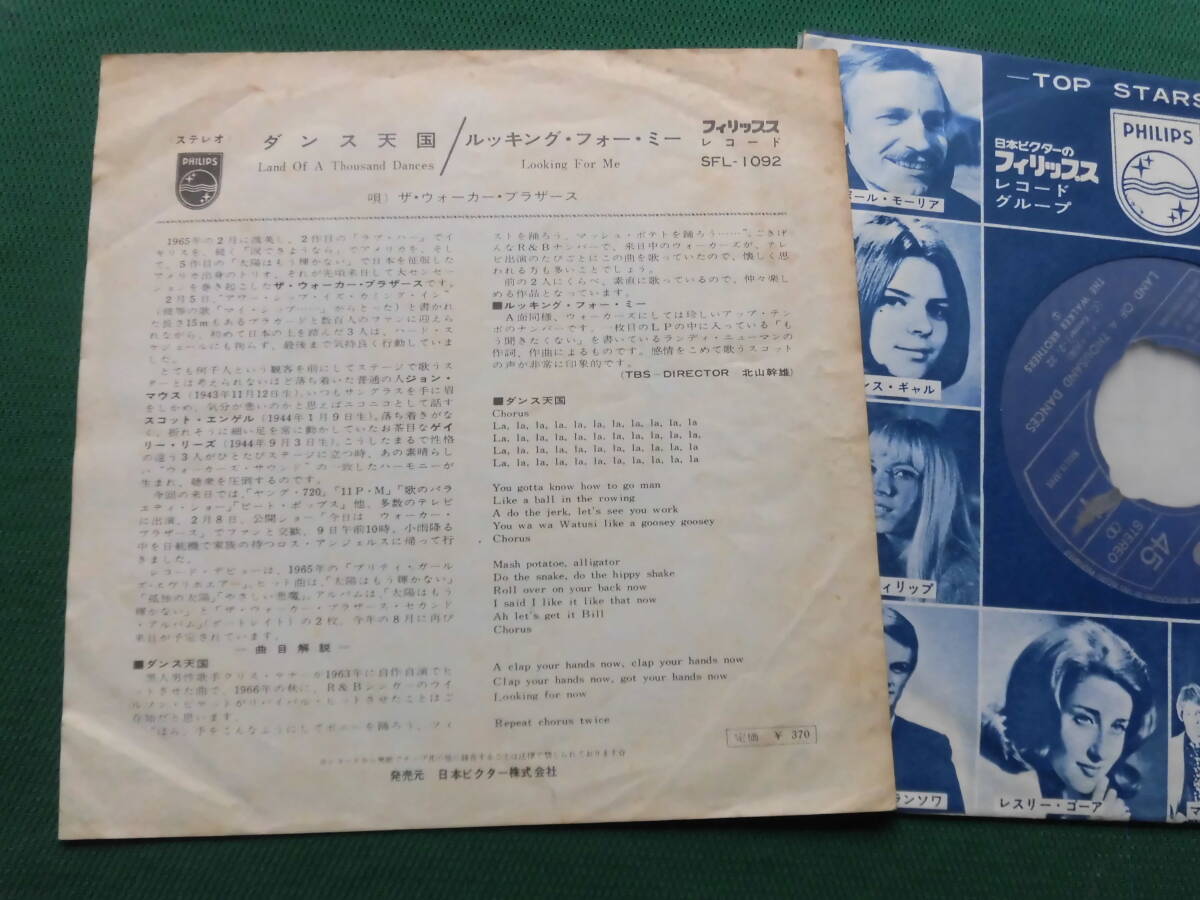 〈ステレオ〉
PHILIPS
ダンス天国/ルッキング・フォー・ミー
Land Of A Thousand Dances
Looking For Me
フィリップス
レコード
SFL-1092
唄）ザ・ウォーカー・ブラザース
1965年の2月に渡英し、2作目の「ラブ・ハー」でイ
ギリスを、続く「涙でさようなら」でアメリカを、そし
て、5作目の「太陽はもう輝かない」で日本を征服した
アメリカ出身のトリオ、それが先頃来日して大センセー
ションを巻き起こしたザ・ウォーカー・ブラザースです。
2月5日、"アワー・シップ・イズ・カミング・イン"
(彼等の歌「マイ・シップ……」からとった)と書かれ
た長さ15mもあるプラカードと数百人のファンに迎えら
れながら、初めて日本の土を踏んだ3人は、ハード・ス
ケジュールにも拘らず、最後まで気持良く行動していま
した。
とても何千人という観客を前にしてステージで歌うス
ターとは考えられないほど落ち着いた普通の人ジョン・
マウス(1943年11月12日生)、いつもサングラスを手に眉
をしかめ、気分が悪いのかと思えばニコニコとして話す
スコット・エンゲル(1944年1月9日生)、落ち着きがな
く、折れそうに細い足を常に動かしていたお茶目なゲイ
リー・リーズ(1944年9月3日生)、こうしたまるで性格
の違う3人がひとたびステージに立つ時、あの素晴らし
い"ウォーカーズ・サウンド"の一致したハーモニーが
生まれ、聴衆を圧倒するのです。
今回の来日では、「ヤング・720」「11P・M」「歌のバラ
エティ・ショー」「ビート・ポップス」他、多数のテレビ
に出演、2月8日、公開ショー「今日は ウォーカー・
ブラザース」でファンと交歓、9日午前10時、小雨降る
中を日航機で家族の待つロス・アンジェルスに帰って行
きました。
レコード・デビューは、1965年の「プリティ・ガール
ズ・エヴリホエアー」、ヒット曲は、「太陽はもう輝かない」
「孤独の太陽」「やさしい悪魔」、アルバムは、「太陽はもう
輝かない」と「ザ・ウォーカー・ブラザース・セカンド
・アルバム」(ポートレイト)の2枚。今年の8月に再び
来日が予定されています。
—曲目解説—
■ダンス天国
黒人男性歌手クリス・ケナーが1963年に自作自演でヒ
ットさせた曲で、1966年の秋に、R&Bシンガーのウイ
ルソン・ピケットがリバイバル・ヒットさせたことはご
存知だと思います。
"ほら、手をこんなふうにしてポニーを踊ろう、ツィ
ストを踊ろう、マッシュ・ポテトを踊ろう……"。ごきげ
んなR&Bナンバーで、来日中のウォーカーズが、テレ
ビ出演のたびごとにこの曲を歌っていたので、懐しく思
われる方も多いことでしょう。
前の2人にくらべ、素直に歌っているので、仲々楽し
める作品となっています。
■ルッキング・フォー・ミー
A面同様、ウォーカーズにしては珍しいアップ・テン
ポのナンバーです。一枚目のLPの中に入っている「も
う聞きたくない」を書いているランディ・ニューマンの
作詞、作曲によるものです。感情をこめて歌うスコット
の声が非常に印象的です。
(TBS-DIRECTOR 北山幹雄)
■ダンス天国
Chorus
La, la, la, la, la, la, la, la, la, la, la
La, la, la, la, la, la, la, la, la, la, la,
La, la, la, la, la, la, la, la, la, la, la
La, la, la, la, la, la, la, la, la, la, la
You gotta know how to go man
Like a ball in the rowing
A do the jerk, let's see you work
You wa wa Watusi like a goosey goosey
Chorus
Mash potatoe, alligator
Do the snake, do the hippy shake
Roll over on your back now
I said I like it like that now
Ah let's get it Bill
Chorus
A clap your hands now, clap your hands now
Clap your hands now, got your hands now
Looking for now
Repeat chorus twice
定価 ¥ 370
発売元 日本ビクター株式会社
—TOP STARS
PHILIPS
日本ビクターの
フィリップス
レコード
グループ
ポール・モーリア
ンス・ギャル
ィリップ
ランソワ
レスリー・ゴーア
マ
LAND OF A THOUSAND DANCES
THE WALKER BROTHERS
STEREO
45